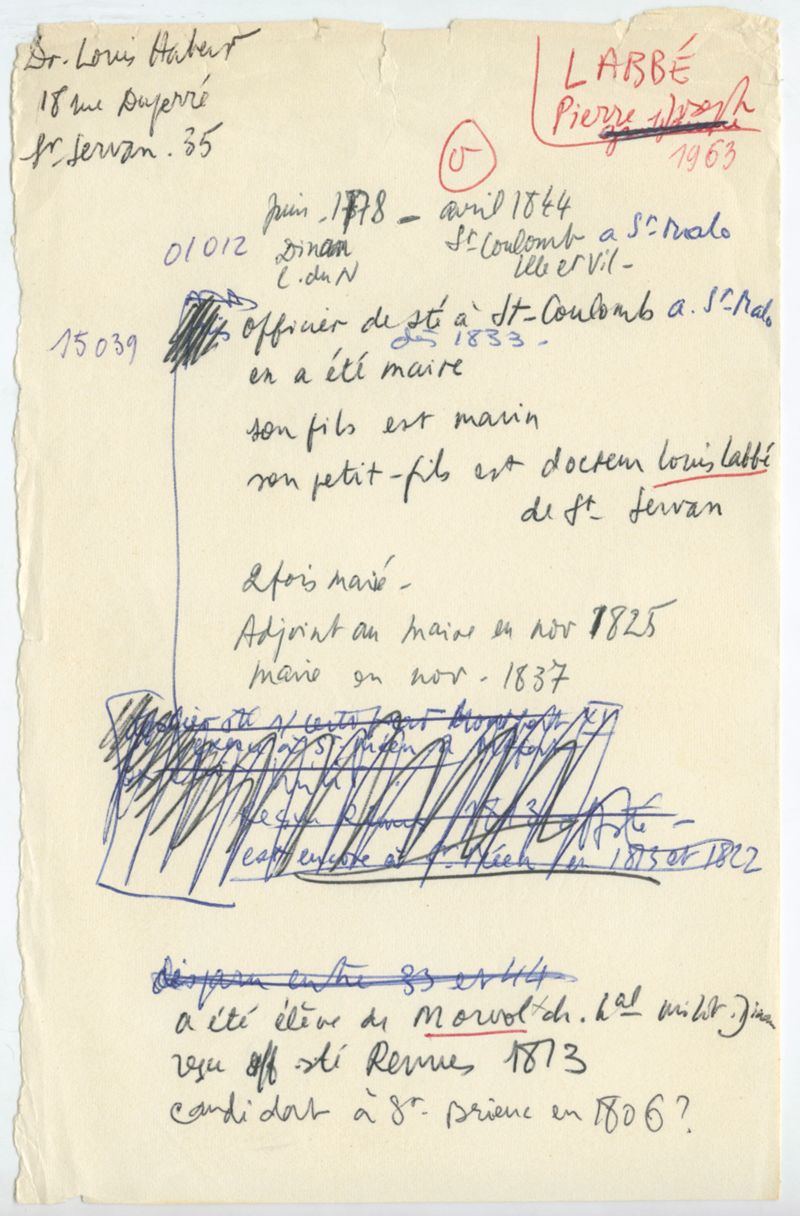 Dr. Louis Habert
18 rue Duperré
St-Servan. 35
LABBÉ
Pierre Joseph
1963
juin - 1778 - avril 1844
01012 Dinan St-Coulomb a St-Malo
C. du N Ille et Vil-
officier de sté à St-Coulomb a. St-Malo
15039 dès 1833 -
en a été maire
son fils est marin
son petit-fils est docteur Louis Labbé
de St- Servan
2 fois marié -
Adjoint au maire en nov 1825
Maire en nov - 1837
reçu 1813 off sté -
est encore à St-Méen en 1813 et 1822
disparu entre 33 et 44
a été élève de Morvol x ch. hal milit. Dinan
reçu off sté Rennes 1813
candidat à St- Brieuc en 1806 ?